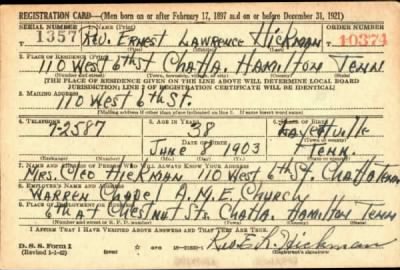 REGISTRATION CARD—(Men born on or after February 17, 1897 and on or before December 31, 1921)
SERIAL NUMBER 1. NAME (Print) ORDER NUMBER
1357 Rev. Ernest Lawrence Hickman 10371
(First) (Middle) (Last)
2. PLACE OF RESIDENCE (Print)
110 West 6th St Chatta. Hamilton Tenn
(Number and street) (Town, township, village, or city) (County) (State)
[THE PLACE OF RESIDENCE GIVEN ON THE LINE ABOVE WILL DETERMINE LOCAL BOARD
JURISDICTION; LINE 2 OF REGISTRATION CERTIFICATE WILL BE IDENTICAL]
3. MAILING ADDRESS
110 West 6th St.
[Mailing address if other than place indicated on line 2. If same insert word same]
4. TELEPHONE 5. AGE IN YEARS 6. PLACE OF BIRTH
7-2587 38 Fayetteville
DATE OF BIRTH (Town or county)
June 8 1903 Tenn.
(Exchange) (Number) (Mo.) (Day) (Yr.) (State or country)
7. NAME AND ADDRESS OF PERSON WHO WILL ALWAYS KNOW YOUR ADDRESS
Mrs. Cleo Hickman 110 West 6th St. Chatta Tenn
8. EMPLOYER'S NAME AND ADDRESS
Warren Chapel A.M.E. Church
9. PLACE OF EMPLOYMENT OR BUSINESS
6th at Chestnut Sts. Chatta. Hamilton Tenn
(Number and street or R. F. D. number) (Town) (County) (State)
I AFFIRM THAT I HAVE VERIFIED ABOVE ANSWERS AND THAT THEY ARE TRUE.
D. S. S. Form 1
(Revised 1-1-42) (over) Rev. E. L. Hickman
(Registrant's signature)